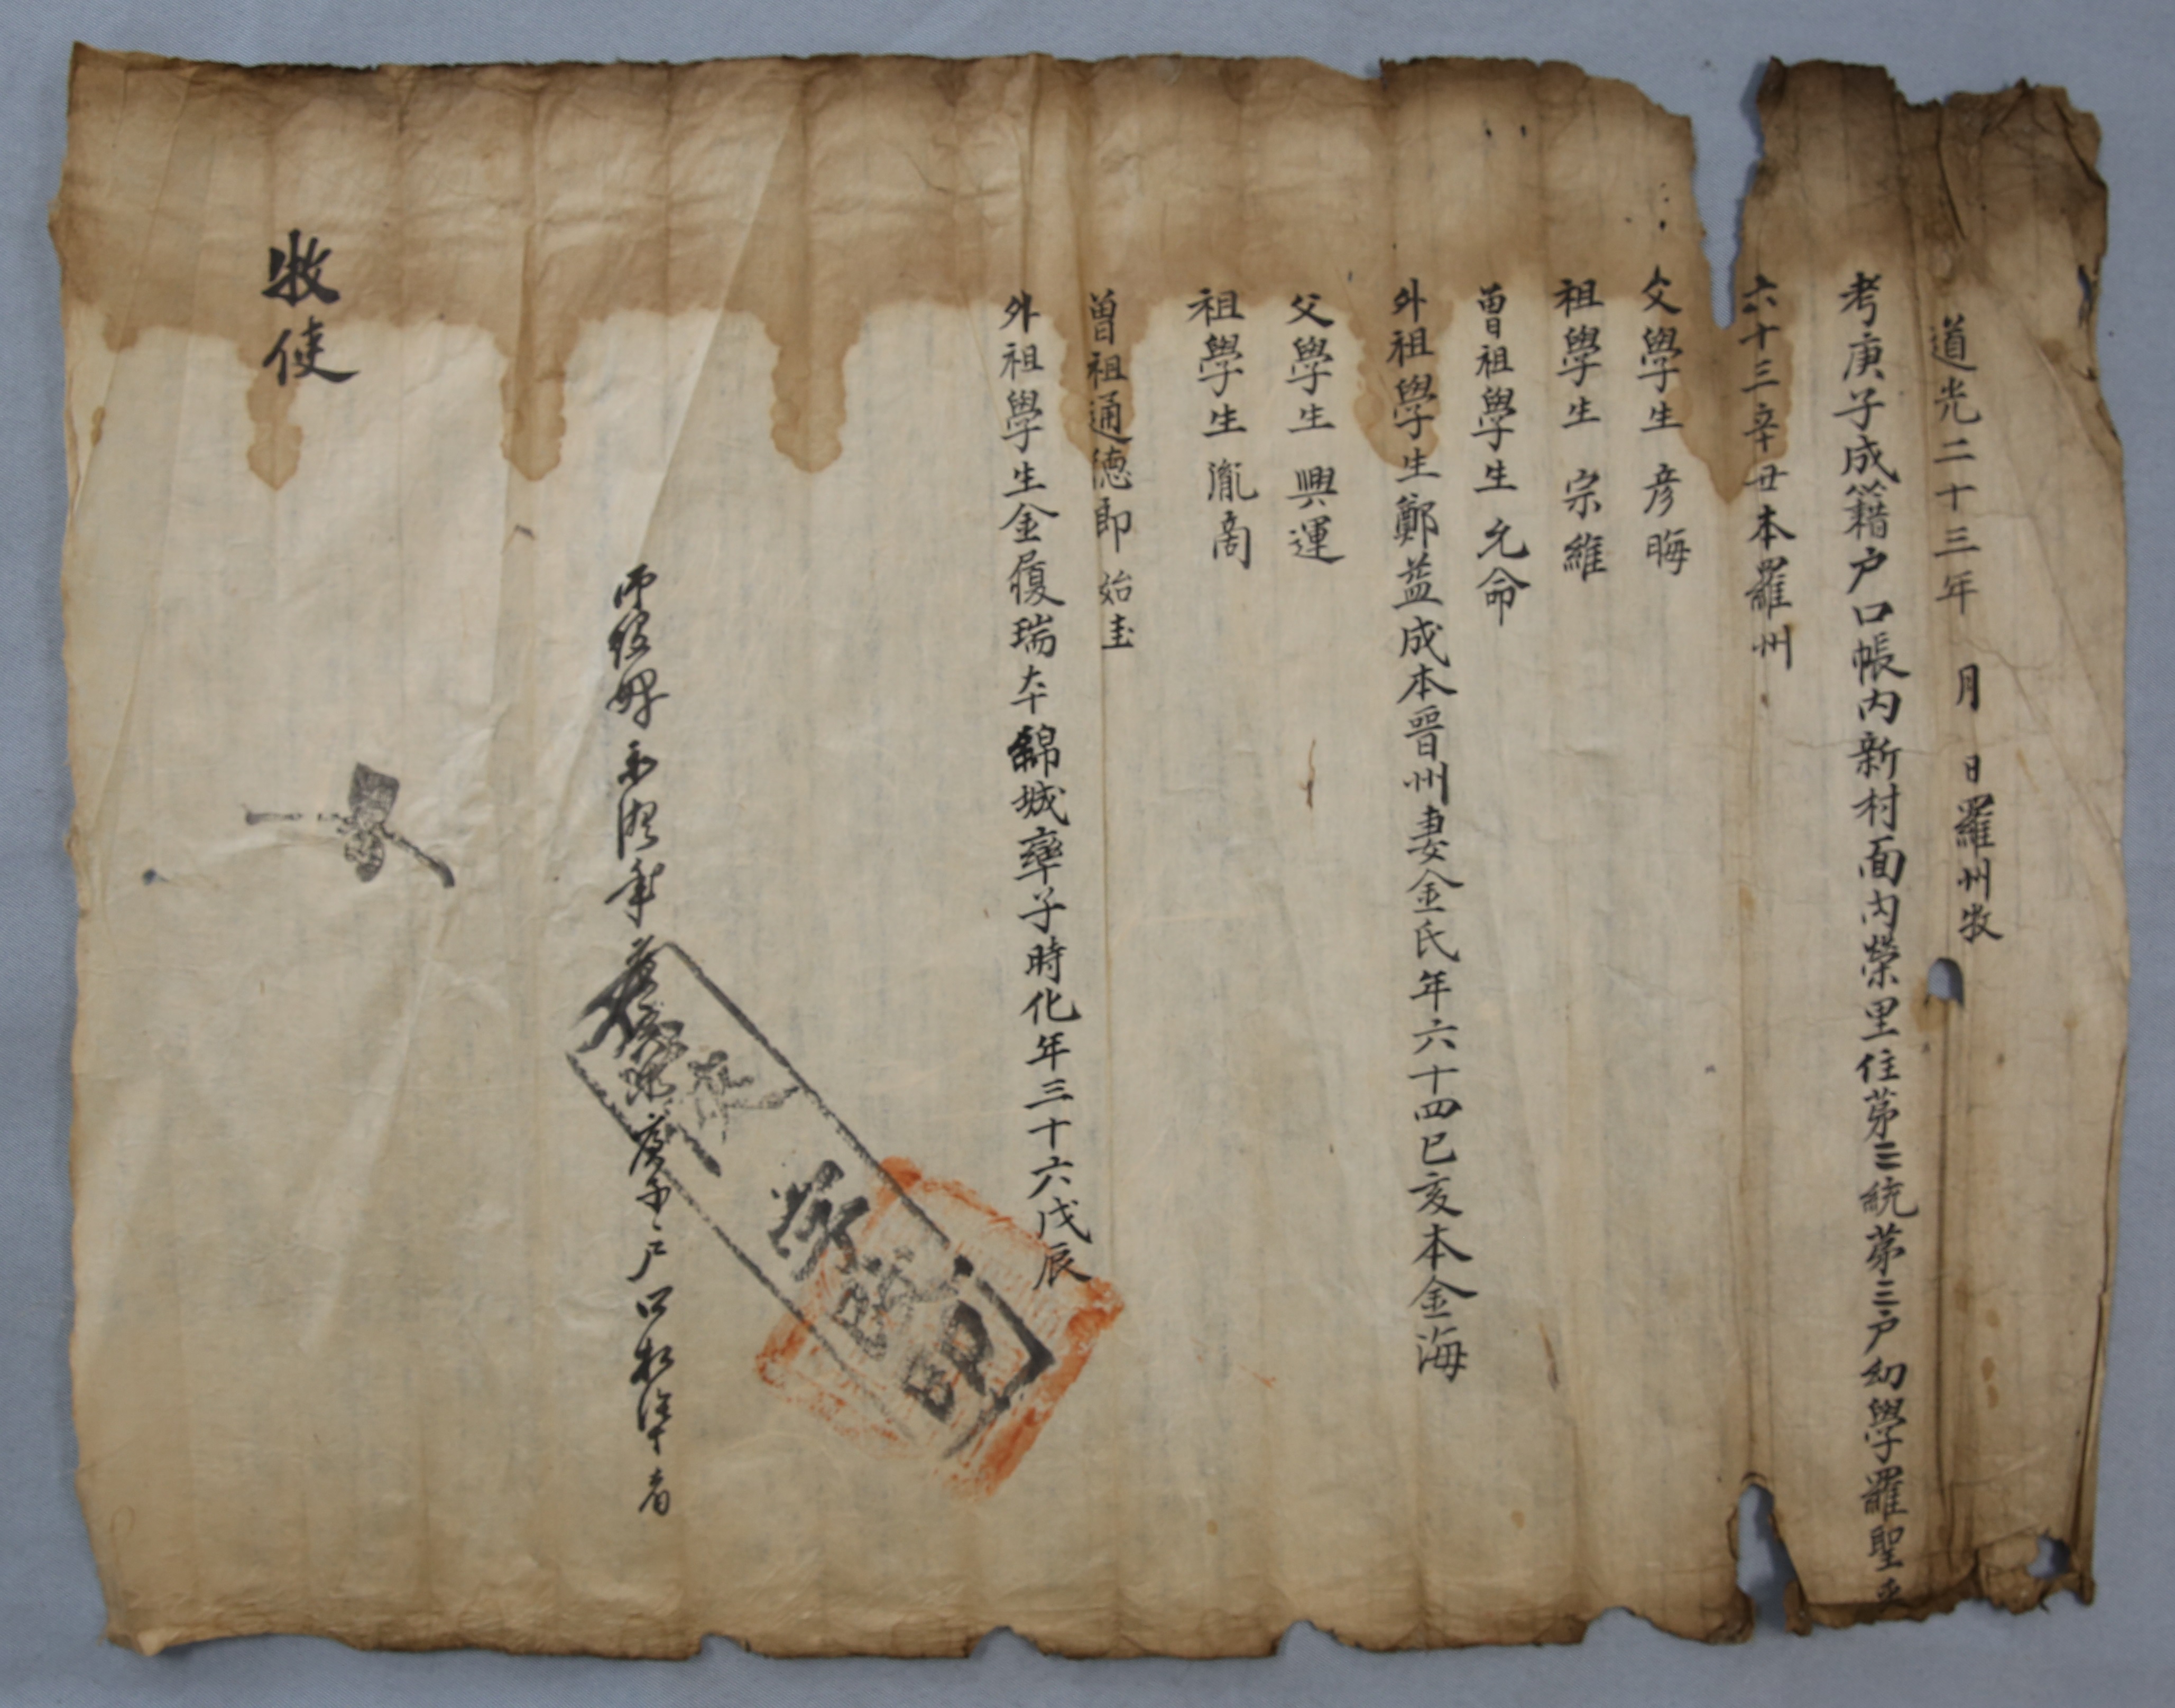 道光二十三年 月 日羅州牧
考庚子成籍户口帳內新村面內榮里住苐三統苐三户幼學羅聖
六十三辛丑本羅州
父學生 彦晦
祖學生 宗維
曾祖學生 允命
外祖學生鄭益成本晉州妻金氏年六十四己亥本金海
父學生 興運
祖學生 胤商
曾祖通德郎 始圭
外祖學生金履瑞本錦城率子時化年三十六戊辰
户口相準者
牧使